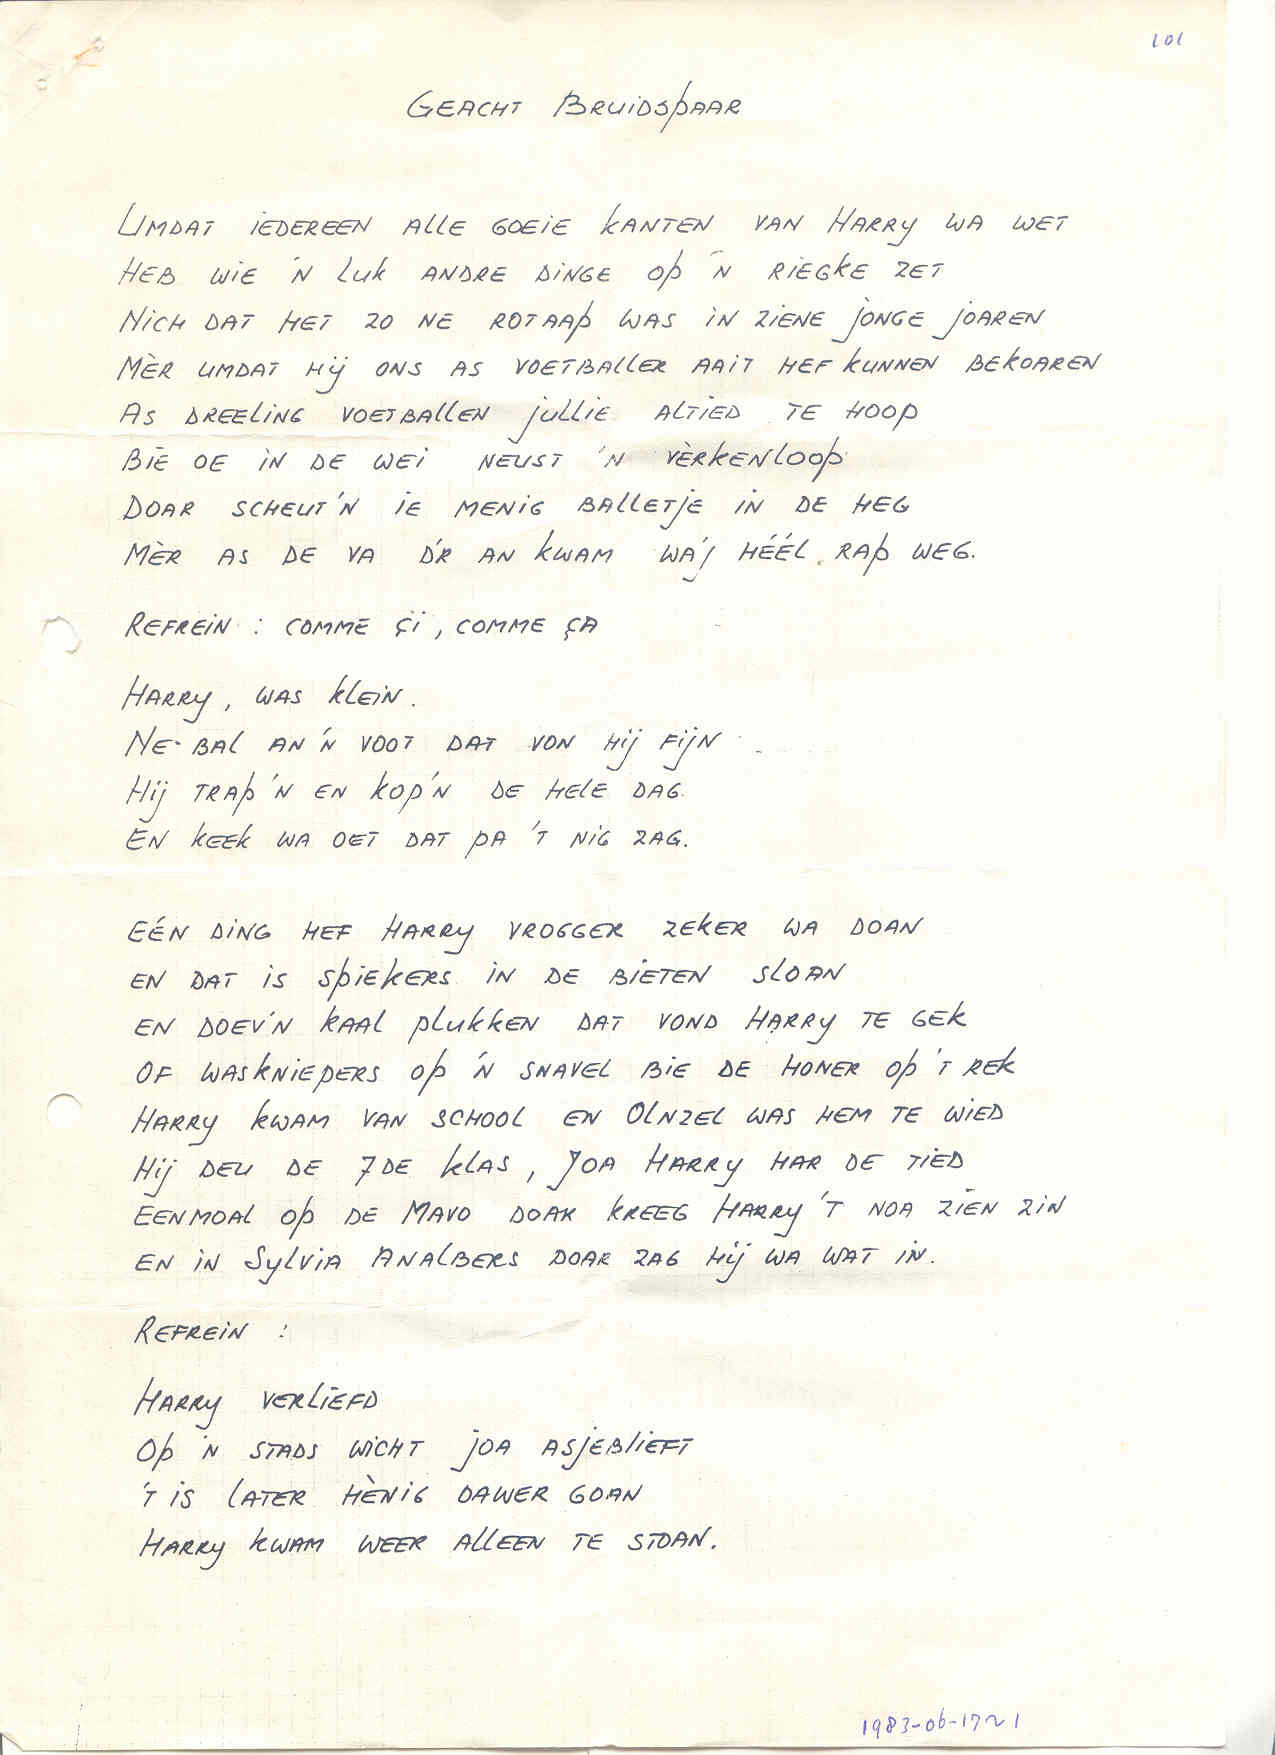 101
GEACHT BRUIDSPAAR
UMDAT IEDEREEN ALLE GOEIE KANTEN VAN HARRY WA WET
HEB WIE 'N LUK ANDRE DINGE OP 'N RIEGKE ZET
NICH DAT HET ZO NE ROTAAP WAS IN ZIENE JONGE JOAREN
MÈR UMDAT HIJ ONS AS VOETBALLER AAIT HEF KUNNEN BEKOAREN
AS DREELING VOETBALLEN JULLIE ALTIED TE HOOP
BIE OE IN DE WEI NEUST 'N VÈRKENLOOP
DOAR SCHEUT'N IE MENIG BALLETJE IN DE HEG
MÈR AS DE VA D'R AN KWAM WA'J HÉÉL RAP WEG.
REFREIN : COMME ÇI, COMME ÇA
HARRY, WAS KLEIN.
NE BAL AN 'N VOOT DAT VON HIJ FIJN
HIJ TRAP'N EN KOP'N DE HELE DAG.
EN KEEK WA OET DAT PA 'T NIG ZAG.
EÉN DING HEF HARRY VROGGER ZEKER WA DOAN
EN DAT IS SPIEKERS IN DE BIETEN SLOAN
EN DOEV'N KAAL PLUKKEN DAT VOND HARRY TE GEK
OF WASKNIEPERS OP 'N SNAVEL BIE DE HONER OP 'T REK
HARRY KWAM VAN SCHOOL EN OLNZEL WAS HEM TE WIED
HIJ DEU DE 7DE KLAS, JOA HARRY HAR DE TIED
EENMOAL OP DE MAVO DOAR KREEG HARRY 'T NOA ZIEN ZIN
EN IN SYLVIA ANALBERS DOAR ZAG HIJ WA WAT IN.
REFREIN :
HARRY VERLIEFD
OP 'N STADS WICHT JOA ASJEBLIEFT
'T IS LATER HÈNIG DAWER GOAN
HARRY KWAM WEER ALLEEN TE STOAN.
1983-06-17~1